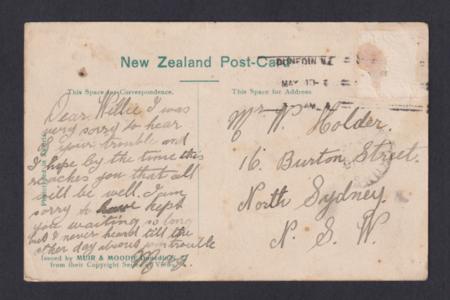 New Zealand Post-Card
DUNEDIN N.Z.
MAY
This Space for Correspondence.
This Space for Address
Dear Willie I was
very sorry to hear
of your trouble and
I hope by the time this
reaches you that all
will be well. I am
sorry to have kept
you waiting so long
but I never heard till the
other day about your trouble
Mr W. Holder.
16. Burton Street.
North Sydney.
N. S. W.
Issued by MUIR & MOODIE, Dunedin, N.Z.
from their Copyright Series of Views